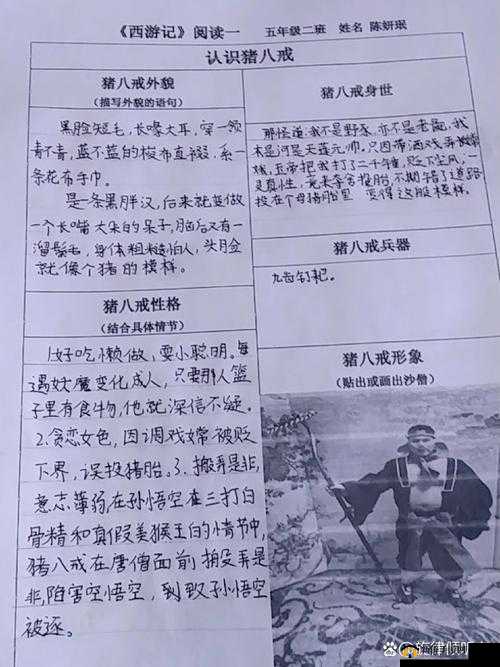 《西游记》阅读一 五年级二班 姓名 陈妍珉
认识猪八戒
猪八戒外貌
(描写外貌的语句)
黑脸短毛,长喙大耳,穿一领
青不青,蓝不蓝的梭布直裰,系一
条花布手巾。
是一条黑胖汉,后来就变做
一个长嘴大耳的呆子,脑后又有一
溜鬃毛,身体粗糙怕人,头脸
就像个猪的模样。
猪八戒性格
(结合具体情节)
1.好吃懒做,耍小聪明。每
遇妖魔变化成人,只要那人篮
子里有食物,他就深信不疑。
2.贪恋女色,因调戏嫦被贬
下界,误投猪胎。3.搬弄是非,
意志薄弱,在孙悟空在三打白
骨精和真假美猴王的情节中,
猪八戒在唐僧面前搬弄是
非,陷害空悟空,到致孙悟空
被逐。
猪八戒身世
那怪道:我不是野豕,亦不是老彘,我
本是河是天蓬元帅,只因带酒戏弄嫦
娥,玉帝把我打了二千锤,贬下尘凡,一
灵真性,竟来夺舍投胎,不期错了道路
投在个母猪胎里 变得这般模样。
猪八戒兵器
九齿钉耙。
猪八戒形象
(贴出或画出沙僧)